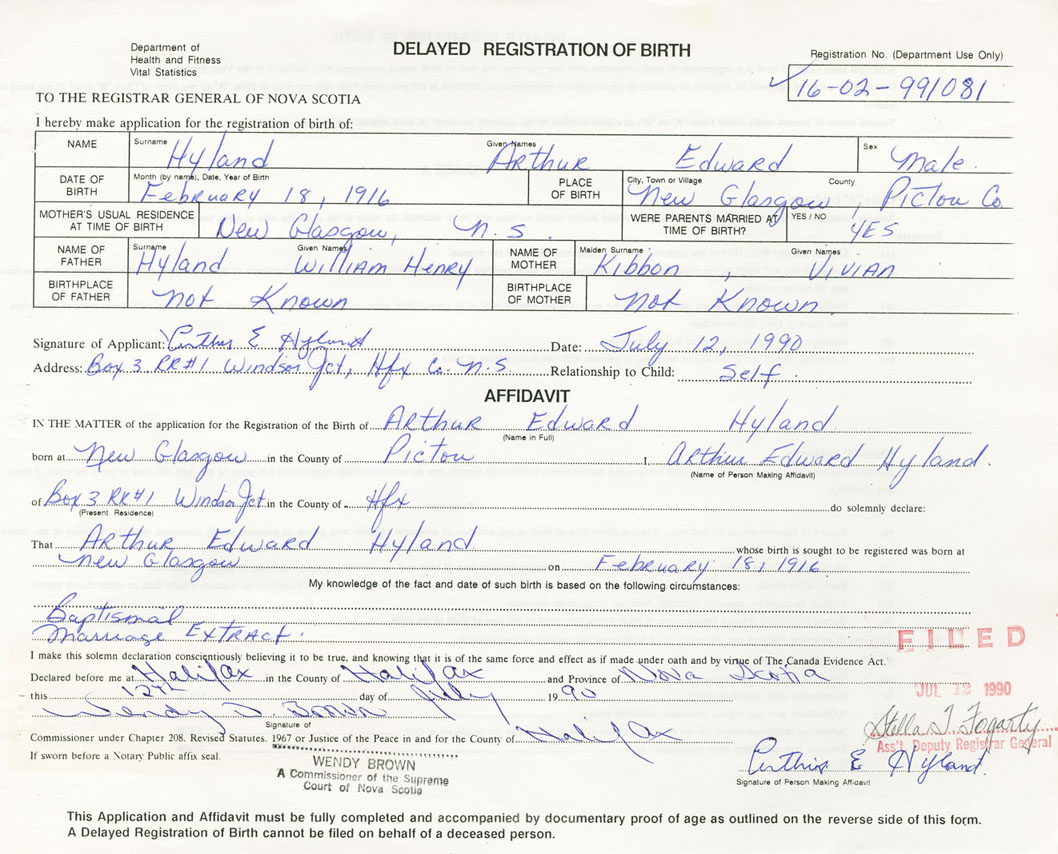 DELAYED REGISTRATION OF BIRTH
Department of
Health and Fitness
Vital Statistics
Registration No. (Department Use Only)
16-02-991081
TO THE REGISTRAR GENERAL OF NOVA SCOTIA
I hereby make application for the registration of birth of:
NAME Surname Hyland Given Names Arthur Edward Sex Male.
DATE OF BIRTH Month (by name), Date, Year of Birth February 18, 1916 PLACE OF BIRTH City, Town or Village New Glasgow County Pictou Co
MOTHER'S USUAL RESIDENCE AT TIME OF BIRTH New Glasgow, N.S. WERE PARENTS MARRIED AT TIME OF BIRTH? YES / NO YES
NAME OF FATHER Surname Hyland Given Names William Henry NAME OF MOTHER Maiden Surname Kibbon Given Names Vivian
BIRTHPLACE OF FATHER Not Known BIRTHPLACE OF MOTHER Not Known
Signature of Applicant: Arthur E Hyland Date: July 12, 1990
Address: Box 3 RR#1 Windsor Jct, Hfx Co. N.S. Relationship to Child: Self.
AFFIDAVIT
IN THE MATTER of the application for the Registration of the Birth of Arthur Edward Hyland
(Name in Full)
born at New Glasgow in the County of Pictou I, Arthur Edward Hyland.
(Name of Person Making Affidavit)
of Box 3 RR#1 Windsor Jct in the County of Hfx do solemnly declare:
(Present Residence)
That Arthur Edward Hyland whose birth is sought to be registered was born at
New Glasgow on February 18, 1916.
My knowledge of the fact and date of such birth is based on the following circumstances:
Baptismal
Marriage Extract.
FILED
I make this solemn declaration conscientiously believing it to be true, and knowing that it is of the same force and effect as if made under oath and by virtue of The Canada Evidence Act.
Declared before me at Halifax in the County of Halifax and Province of Nova Scotia
this 12th day of July 1990
JUL 12 1990
Wendy D. Brown
Signature of
Stella T. Fogarty
Commissioner under Chapter 208. Revised Statutes. 1967 or Justice of the Peace in and for the County of Halifax
Ass't. Deputy Registrar General
If sworn before a Notary Public affix seal.
WENDY BROWN
A Commissioner of the Supreme
Court of Nova Scotia
Arthur E Hyland.
Signature of Person Making Affidavit
This Application and Affidavit must be fully completed and accompanied by documentary proof of age as outlined on the reverse side of this form.
A Delayed Registration of Birth cannot be filed on behalf of a deceased person.